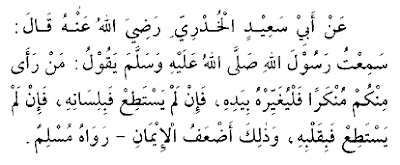 عَنْ أَبِيْ سَعِيْدٍ الْخُدْرِيِّ رَضِيَ اللهُ عَنْهُ قَالَ:
سَمِعْتُ رَسُوْلَ اللهِ صَلَّى اللهُ عَلَيْهِ وَسَلَّمَ يَقُوْلُ: مَنْ رَأَى
مِنْكُمْ مُنْكَرًا فَلْيُغَيِّرْهُ بِيَدِهِ، فَإِنْ لَمْ يَسْتَطِعْ فَبِلِسَانِهِ، فَإِنْ لَمْ
يَسْتَطِعْ فَبِقَلْبِهِ، وَذَلِكَ أَضْعَفُ الْإِيْمَانِ – رَوَاهُ مُسْلِمٌ.